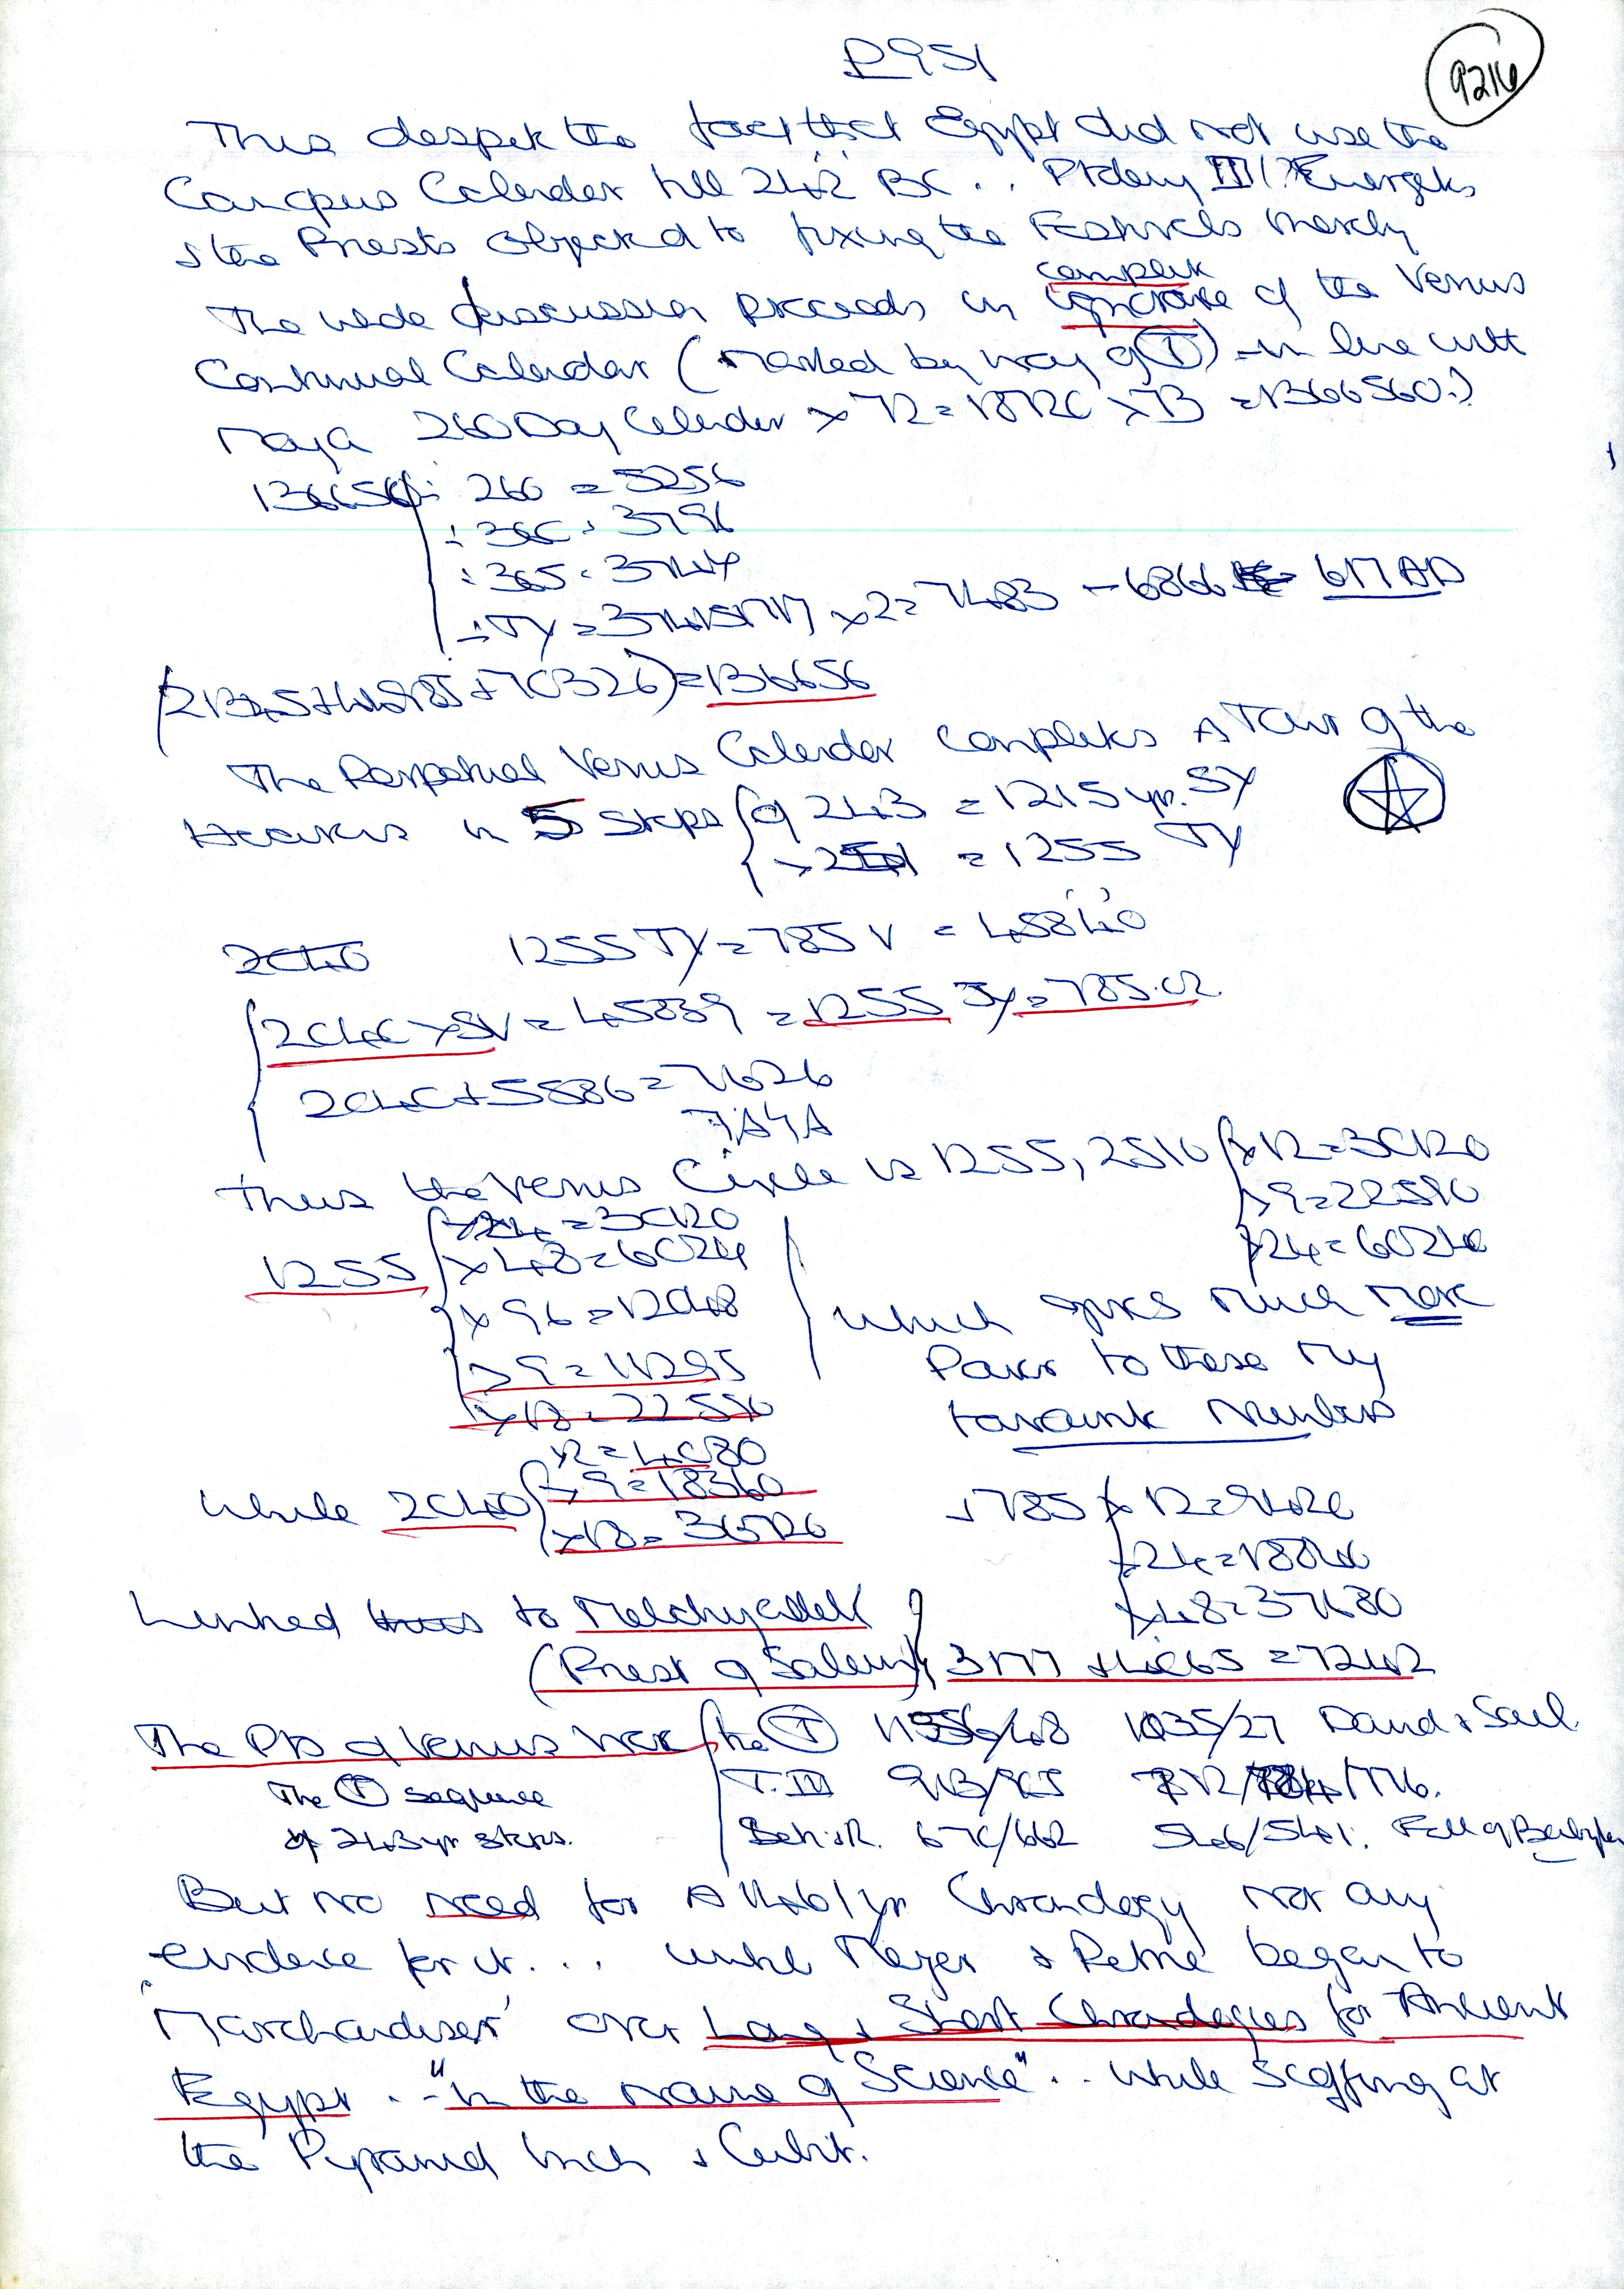 P951
9216
This despite the fact that Egypt did not use the
Canopus Calender till 242 BC .. Ptolemy III Euergetes
& the Priests objected to fixing the Festivals thereby
The whole discussion proceeds in complete ignorance of the Venus
Continual Calendar (marked by way of (T) - in line with
Maya 260 Day Calender × 72 = 18720 × 73 = 1366560.)
1366560 ÷ 260 = 5256
÷ 360 = 3796
÷ 365 = 3744
÷ TY = 3741.5 × 2 = 7483 - 6866 = 617 AD
= 136656
The Perpetual Venus Calender completes A Tour of the
Heavens in 5 Steps of 243 = 1215 yr. SY
× 251 = 1255 TY
1255 TY = 785 V = 45840
2040 × SV = 45839 = 1255 JY = 785.02
2040 + 5586 = 7626
Thus the Venus Circle is 1255, 2510 × 12 = 30120
× 9 = 22590
× 24 = 60240
1255 × 24 = 30120
× 48 = 6024
× 96 = 12048
× 9 = 11295
× 18 = 22590
which gives much more
Power to these my
favourite Numbers
While 2040 × 2 = 4080
× 9 = 18360
× 18 = 36720
+ 785 × 12 = 9420
× 24 = 18840
× 48 = 37680
Linked to Melchizedek
(Priest of Salem) 3177 + 4065 = 7242
The Pts of Venus were the (T) 1156/48 1035/27 David & Saul
T. III 913/05 812/784/776.
The (T) sequence
of 243 yr steps.
Beh. R. 670/662 546/541. Fall of Babylon
But no need for A 1461 yr Chronology nor any
evidence for it ... until Meyer & Petrie began to
'Merchandiser' over Long & Short Chronologies for Ancient
Egypt .. "in the name of Science" .. while scoffing at
the Pyramid Inch & Cubit.